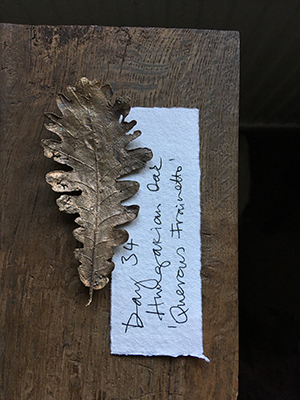 Day 34
Hungarian Oak
'Quercus Frainetto'